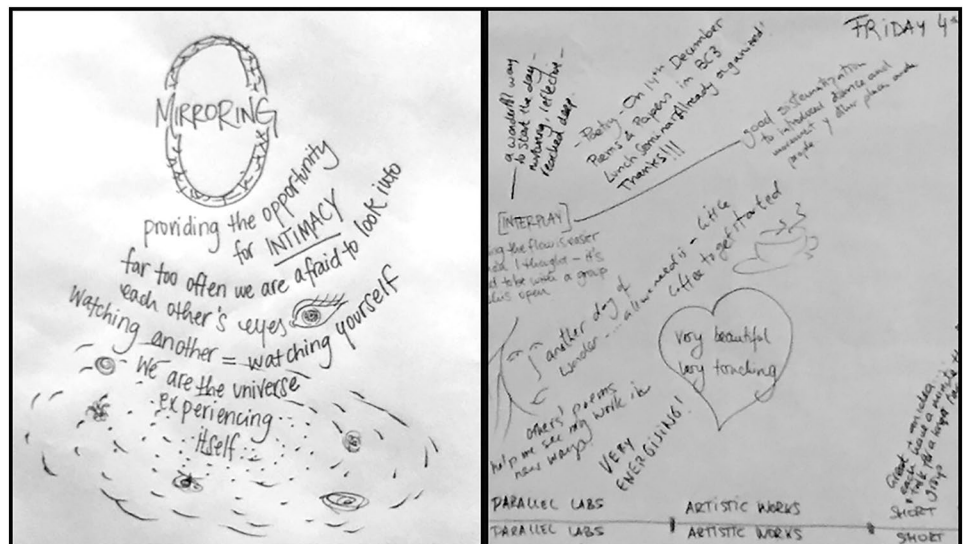 MIRRORING
providing the opportunity
for INTIMACY
far too often we are afraid to look into
each other's eyes
Watching another = watching yourself
We are the universe
experiencing
itself...
FRIDAY 4
a wonderful way
to start the day -
nurturing, reflective -
reached deep
- Poetry - On 14th December
Poems & Papers in BC3
Lunch Seminar Already organized!
Thanks!!!
good systematization
to introduce dance and
movement
people
[INTERPLAY]
the flow is easier
I thought - it's
to be with a group
open
another day of
wonder .... all we need is - little
coffee to get started
very beautiful
very touching
others' poems
help me see my work in
new ways
VERY
ENERGISING!
Great idea
each have a minute
talk
group
PARALLEL LABS
ARTISTIC WORKS
SHORT
PARALLEL LABS
ARTISTIC WORKS
SHORT